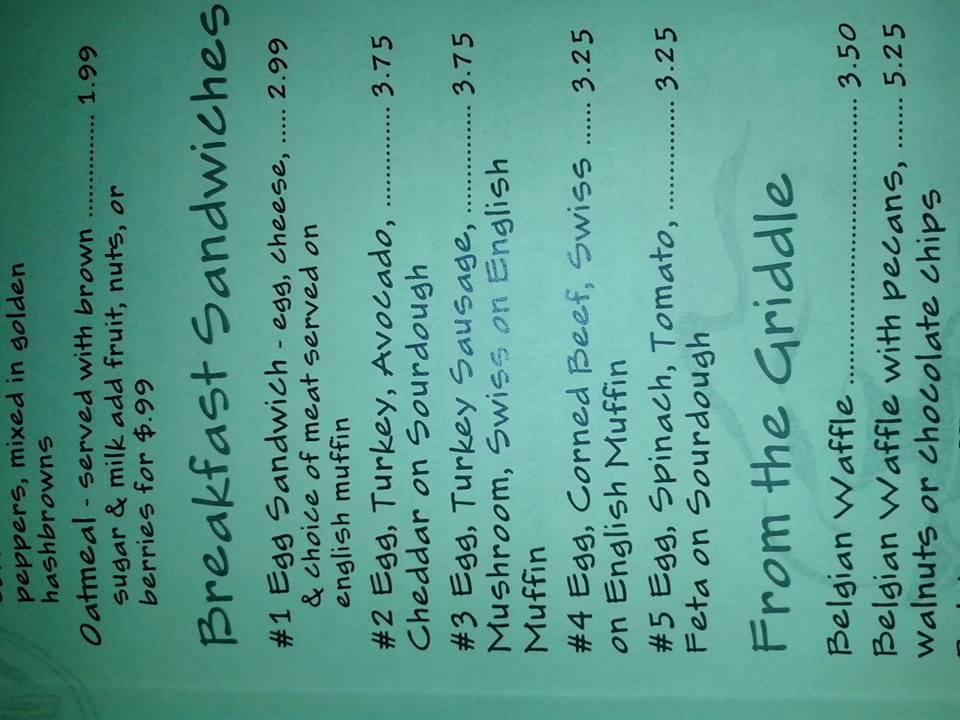 peppers, mixed in golden
hashbrowns
Oatmeal - served with brown ............ 1.99
sugar & milk add fruit, nuts, or
berries for $.99
Breakfast Sandwiches
#1 Egg Sandwich - egg, cheese, ..... 2.99
& choice of meat served on
english muffin
#2 Egg, Turkey, Avocado, ............ 3.75
Cheddar on Sourdough
#3 Egg, Turkey Sausage, ............. 3.75
Mushroom, Swiss on English
Muffin
#4 Egg, Corned Beef, Swiss ...... 3.25
on English Muffin
#5 Egg, Spinach, Tomato, ............. 3.25
Feta on Sourdough
From the Griddle
Belgian Waffle ........................................ 3.50
Belgian Waffle with pecans, ...... 5.25
walnuts or chocolate chips